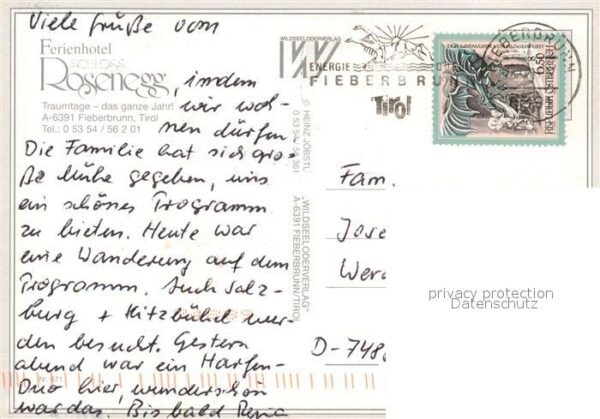 Viele Grüße vom
Ferienhotel
SCHLOSS
Rosenegg
Traumtage - das ganze Jahr!
A-6391 Fieberbrunn, Tirol
Tel.: 0 53 54 / 56 2 01
, indem
wir woh-
nen dürfen.
Die Familie hat sich gro-
ße Mühe gegeben, uns
ein schönes Programm
zu bieten. Heute war
eine Wanderung auf dem
Programm. Auch Salz-
burg + Kitzbühel wer-
den besucht. Gestern
abend war ein Harfen-
Duo hier, wunderschön
war das. Bis bald
WILDSEELODERVERLAG
© HEINZ JÖBSTL
"WILDSEELODERVERLAG"
A-6391 FIEBERBRUNN/TIROL
ENERGIE
FIEBERBRUNN
Tirol
FIEBERBRUNN
DER LINDWURM VON KLAGENFURT
6.50
REPUBLIK ÖSTERREICH
Fam.
Jose
Wer
D-748
privacy protection
Datenschutz